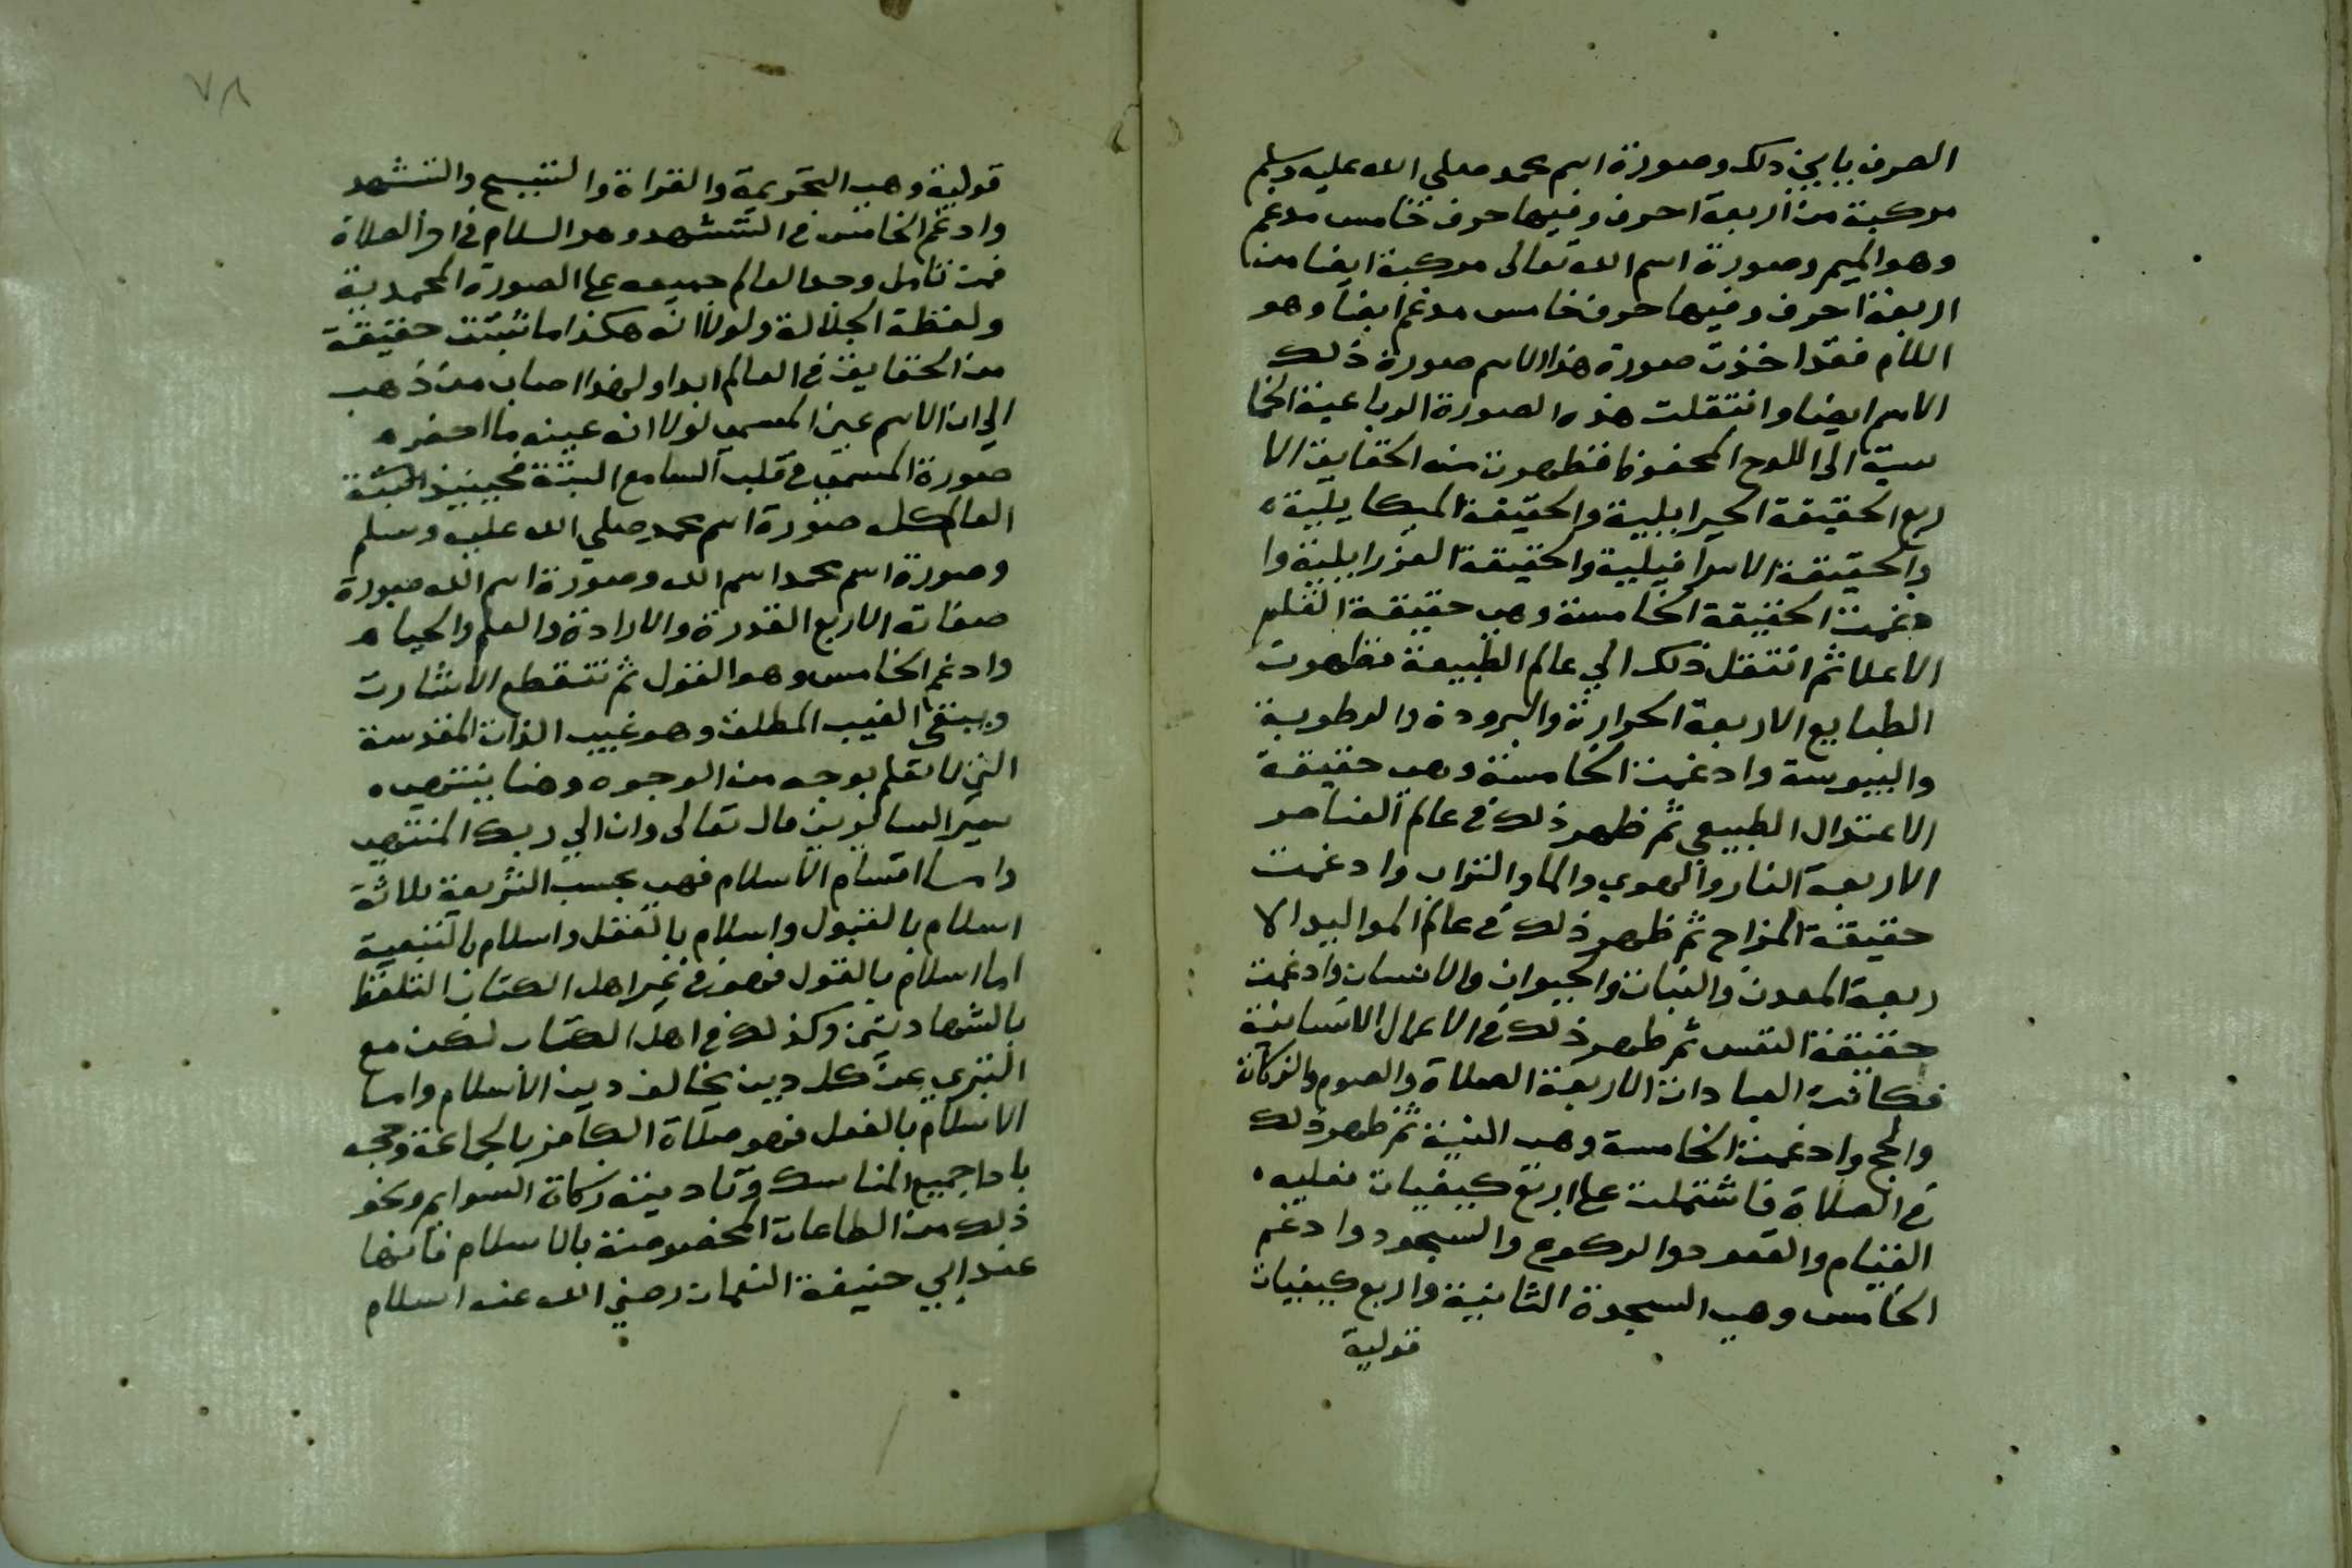 الصرف يابي ذلك وصورة اسم محمد صلي الله عليه وسلم
مركبة من اربعة احرف وفيها حرف خامس مدغم
وهو الميم وصورة اسم الله تعالى مركبة ايضا من
اربعة احرف وفيها حرف خامس مدغم ايضا وهو
اللام فقد اخذت صورة هذا الاسم صورة ذلك
الاسم ايضا وانتقلت هذه الصورة الرباعية الخما
سية الى اللوح المحفوظ فظهرت منه الحقايق الا
ربع الحقيقة الجبرايلية والحقيقة الميكايلية
والحقيقة الاسرافيلية والحقيقة العزرايلية وا
دغمت الحقيقة الخامسة وهي حقيقة القلم
الاعلا ثم انتقل ذلك الي عالم الطبيعة فظهرت
الطبايع الاربعة الحرارة والبرودة والرطوبة
واليبوسة وادغمت الخامسة وهي حقيقة
الاعتدال الطبيعي ثم ظهر ذلك في عالم العناصر
الاربعة النار والهوي والما والتراب وادغمت
حقيقة المزاج ثم ظهر ذلك في عالم المواليد الا
ربعة المعدن والنبات والحيوان والانسان وادغمت
حقيقة النفس ثم ظهر ذلك في الاعمال الانسانية
فكانت العبادات الاربعة الصلاة والصوم والزكاة
والحج وادغمت الخامسة وهي النية ثم ظهر ذلك
في الصلاة فاشتملت علي اربع كيفيات فعليه
القيام والقعود والركوع والسجود وادغم
الخامس وهي السجدة الثانية واربع كيفيات
قولية
٧٨
قولية وهي التحريمة والقراة والتسبيح والتشهد
وادغم الخامس في التشهد وهو السلام في اخر الصلاة
فمن تامل وجد العالم جميعه علي الصورة المحمدية
ولفظة الجلالة ولولا انه هكذا ما ثبتت حقيقة
من الحقايق في العالم ابدا ولهذا اصاب من ذهب
الي ان الاسم عين المسمي لولا انه عينه ما احضر
صورة المسمي في قلب السامع البتة فحينيذ
العالم كله صورة اسم محمد صلي الله عليه وسلم
وصورة اسم محمد اسم الله وصورة اسم الله صورة
صفاته الاربع القدرة والارادة والعلم والحياه
وادغم الخامس وهو القول ثم تنقطع الاشارت
ويبقى الغيب المطلق وهو غيب الذات المقدسة
التي لا تعلم بوجه من الوجوه وهنا ينتهي
سير السالكين قال تعالى وان الي ربك المنتهي
واما اقسام الاسلام فهي بحسب الشريعة ثلاثة
اسلام بالقبول واسلام بالفعل واسلام بالتبعية
اما اسلام بالقول فهو في غير اهل الكتاب التلفظ
بالشهادتين وكذلك في اهل الكتاب لكن مع
التبري عن كل دين يخالف دين الاسلام واما
الاسلام بالفعل فهو صلاة الكافر بالجماعة وحجه
باداجميع المناسك وتاديته زكاة السوايم ونحو
ذلك من الطاعات المخصوصة بالاسلام فانها
عند ابي حنيفة النعمان رضي الله عنه اسلام